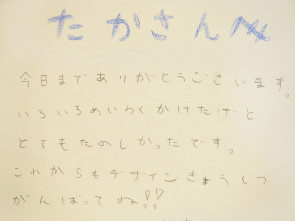 たかさんへ
今日までありがとうございます。
いろいろめいわくかけたけど
とてもたのしかったです。
これからもデザインきょうしつ
がんばってね!!